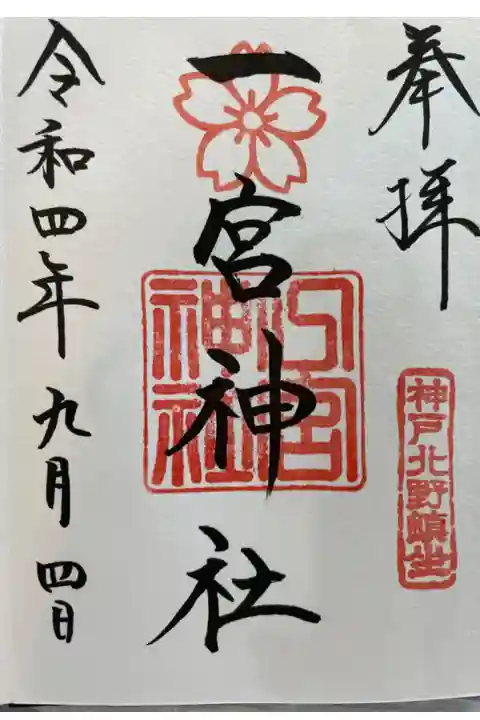 奉拝
神戸北野鎮坐
一宮神社
一宮神社
令和四年九月四日